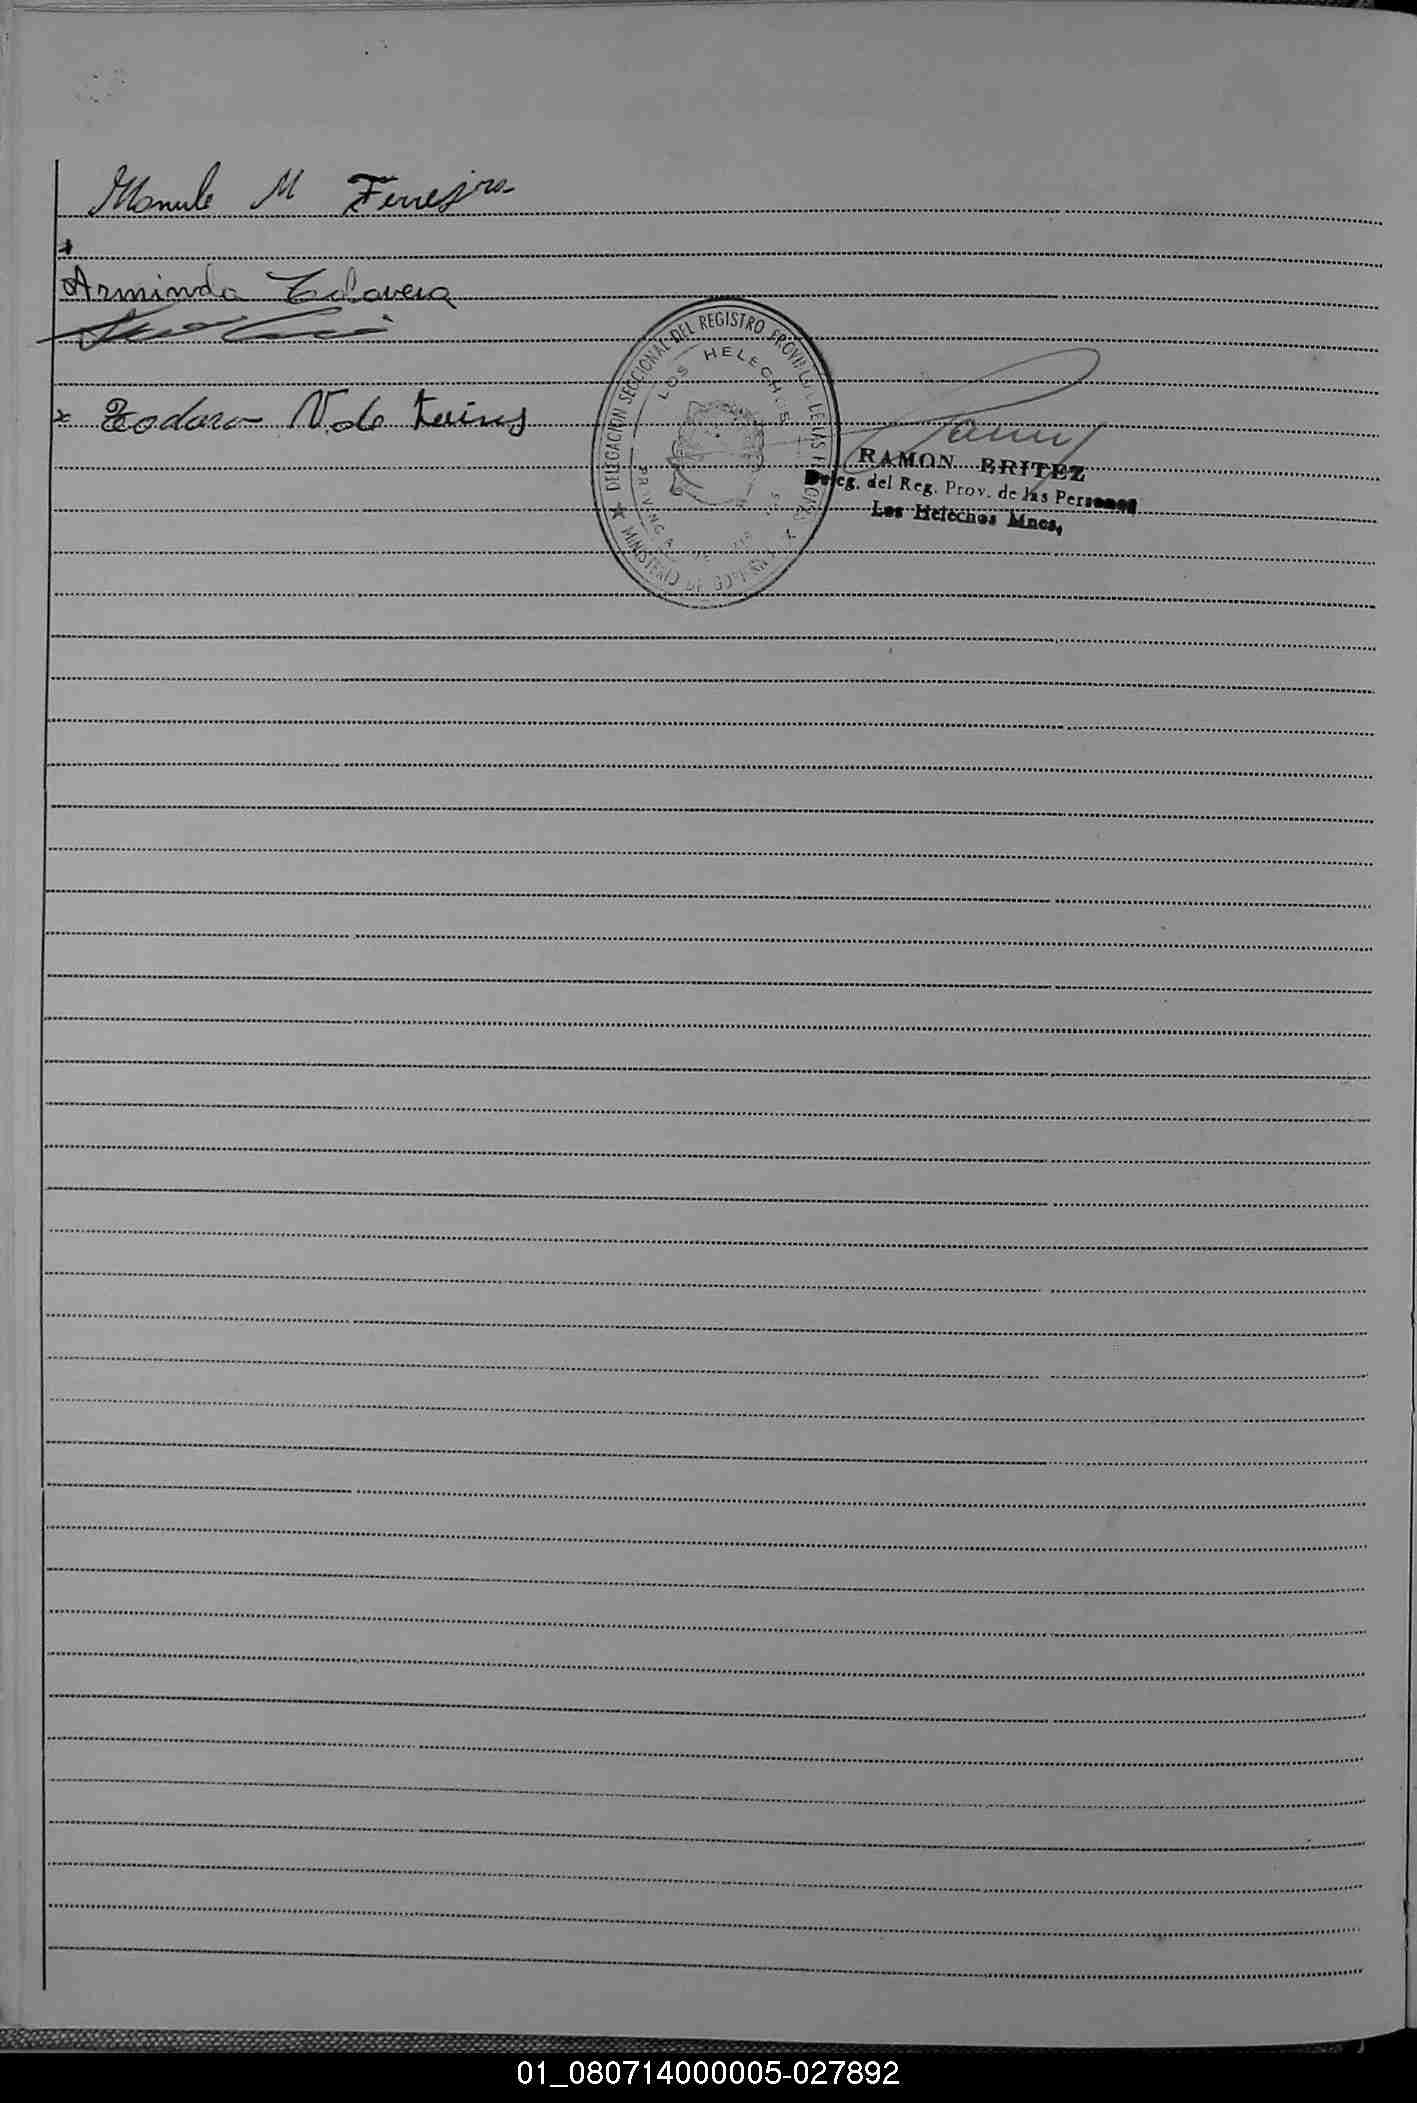 Manule M Ferreira
Arminda Talavera
x Teodora V. de
DELEGACION SECCIONAL DEL REGISTRO PROVINCIAL DE LAS PERSONAS
LOS HELECHOS
PROVINCIA
★ MINISTERIO DE GOBIERNO
RAMON BRITEZ
Deleg. del Reg. Prov. de las Personas
Los Helechos Mnes,
01_080714000005-027892